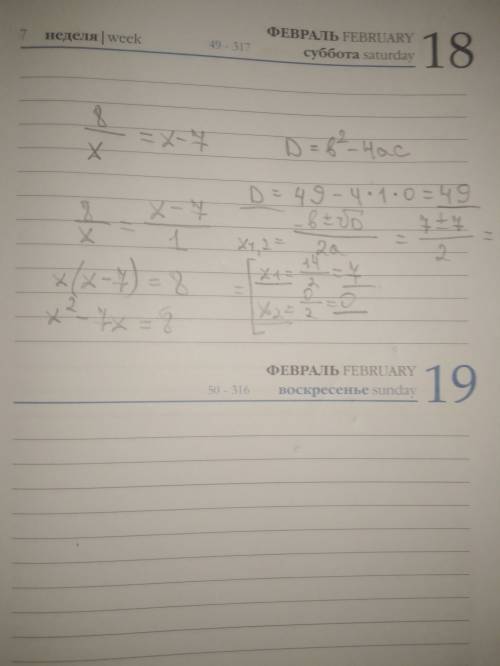 7 неделя | week 49 - 317 ФЕВРАЛЬ FEBRUARY 18
суббота saturday
8/x = x - 7
D = b² - 4ac
D = 49 - 4 · 1 · 0 = 49
8/x = (x - 7)/1
x1,2 = (-b ± √D)/2a = (7 ± 7)/2 =
x(x - 7) = 8
= [ x1 = 14/2 = 7
x² - 7x = 8
x2 = 0/2 = 0
ФЕВРАЛЬ FEBRUARY 19
50 - 316 воскресенье sunday